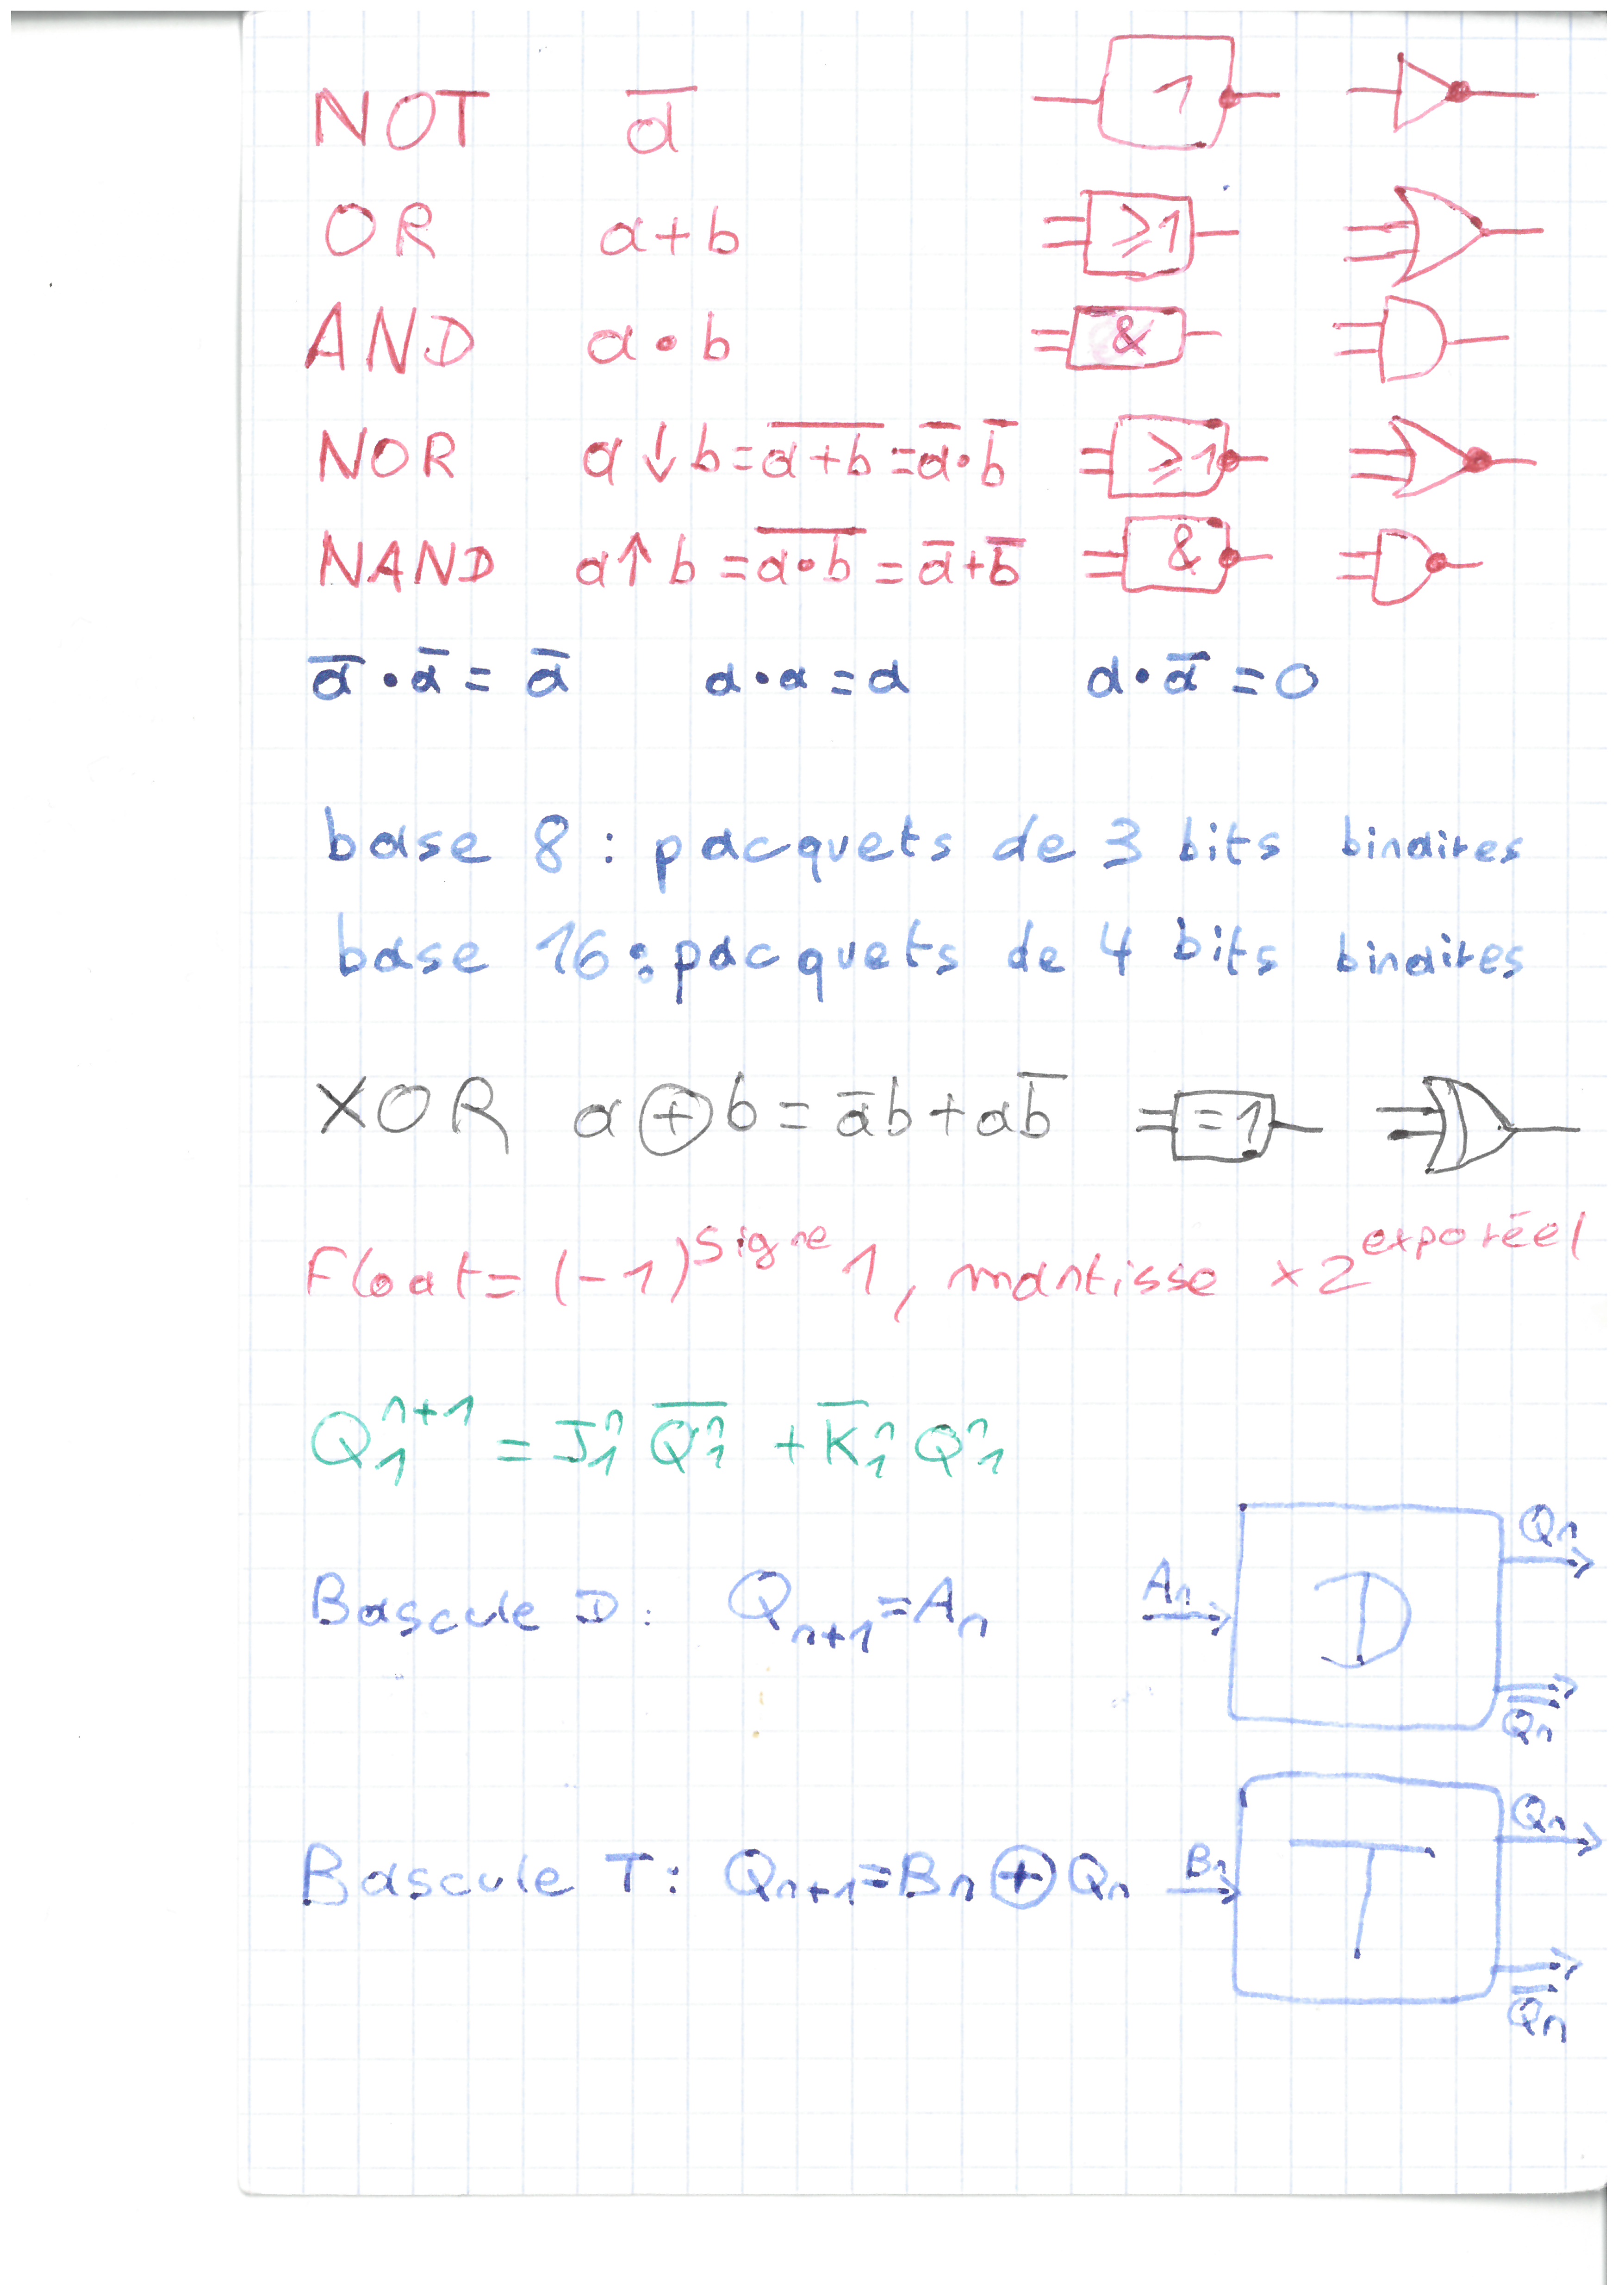 NOT a̅ 1
OR a+b ≥1
AND a•b &
NOR a↓b=a̅+̅b̅=a̅•b̅ ≥1
NAND a↑b=a̅•̅b̅=a̅+b̅ &
a̅•a̅=a̅ a•a=a a•a̅=0
base 8 : pacquets de 3 bits binaires
base 16 : pacquets de 4 bits binaires
XOR a⊕b=a̅b+ab̅ =1
Float=(-1)^signe 1, mantisse ×2^expo réel
Q₁ⁿ⁺¹ = J₁ⁿ Q̅₁̅ⁿ̅ + K̅₁ⁿ Q₁ⁿ
Bascule D : Qₙ₊₁=Aₙ Aₙ D Qₙ Q̅ₙ
Bascule T : Qₙ₊₁=Bₙ⊕Qₙ Bₙ T Qₙ Q̅ₙ